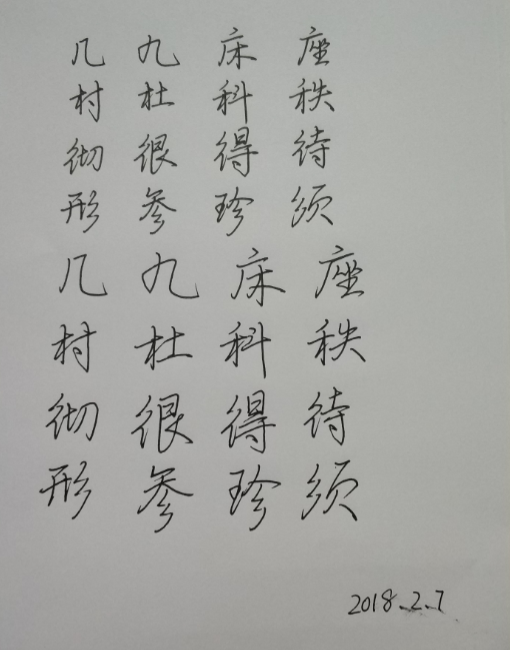 几 九 床 座
村 杜 科 秩
彻 很 得 待
形 参 珍 须
几 九 床 座
村 杜 科 秩
彻 很 得 待
形 参 珍 须
2018.2.7